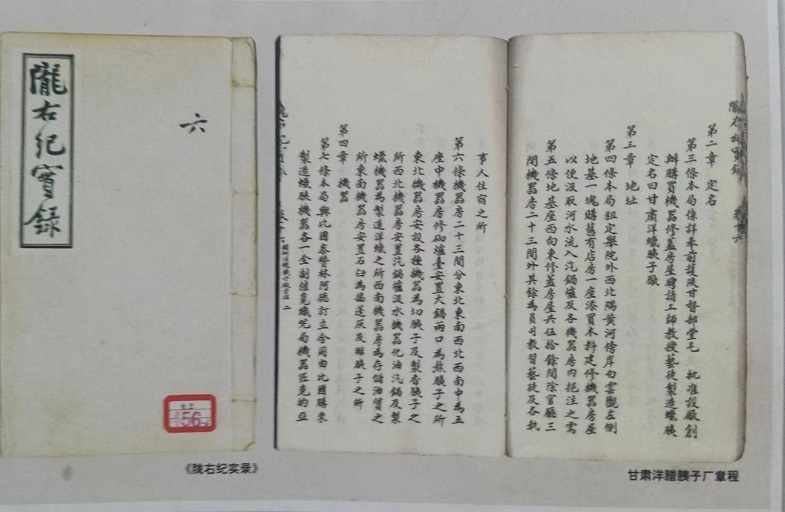 隴右纪實録
六
56
第二章 定名
第三條本局係詳奉前護陝甘督部堂毛 批准設廠創
辦購買機器修蓋房屋聘請工師教授藝徒製造蠟胰
定名曰甘肅洋蠟胰子廠
第三章 地址
第四條本局組定舉院外西北隅黄河傍岸白雲觀左側
地基一塊購舊有店房一座添買木料建修機器房屋
以便汲取河水流入汽鍋爐及各機器房内挹注之需
第五條地基座西向東修蓋房屋共伍拾餘間除官廳三
間機器房二十三間外其餘為員司教習藝徒及各執
事人住宿之所
第六條機器房二十三間分東北東南西北西南中為五
座中機器房修砌爐臺安置大鍋兩口為熬胰子之所
東北機器房安設各種機器為切胰子及製香胰子之
所西北機器房安置汽鍋爐汲水機器化油汽鍋及製
蠟機器為製造洋蠟之所西南機器房為存儲油質之
所東南機器房安置石臼為搗蓬灰及晾胰子之所
第四章 機器
第七條本局與比國泰贊林阿德訂立合同由比國購來
製造蠟胰機器各一全副
《陇右纪实录》
甘肃洋腊胰子厂章程